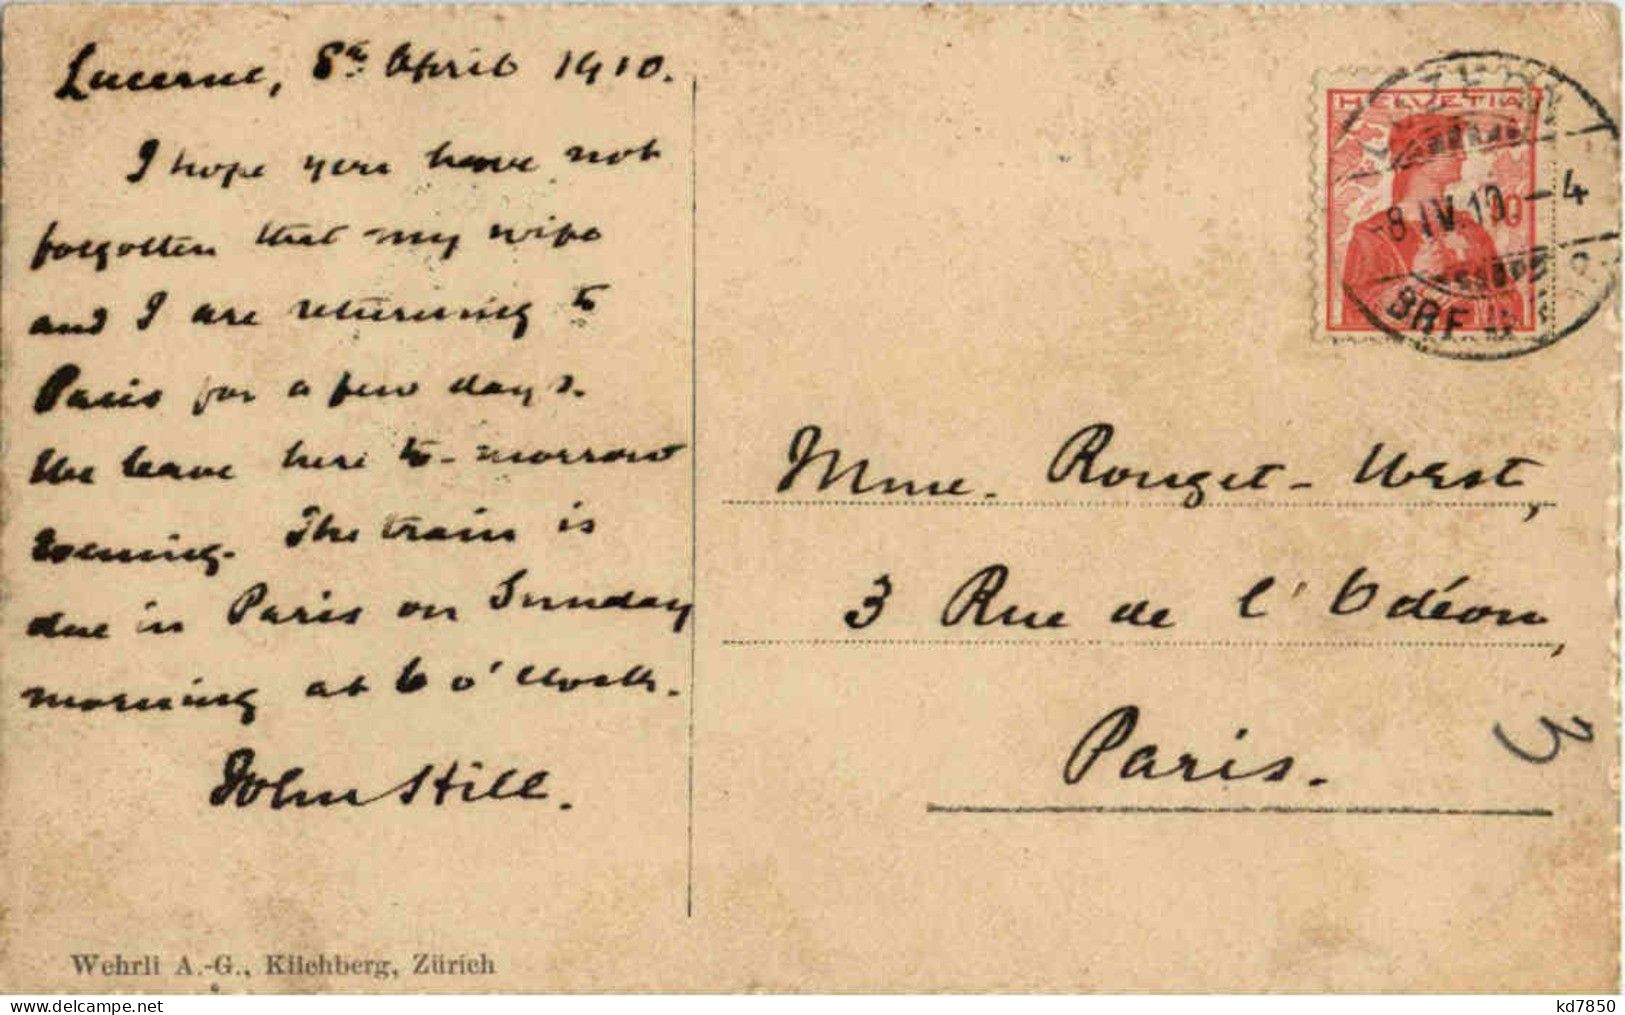 Lucerne, 8th April 1910.
I hope you have not
forgotten that my wife
and I are returning to
Paris for a few days.
We leave here to-morrow
evening. The train is
due in Paris on Sunday
morning at 6 o'clock.
John Hill.
Wehrli A.-G., Kilchberg, Zürich
HELVETIA
10
-8.IV.10.-4
BRF
Mme. Rouget-West,
3 Rue de l'Odéon,
Paris.
3
kd7850